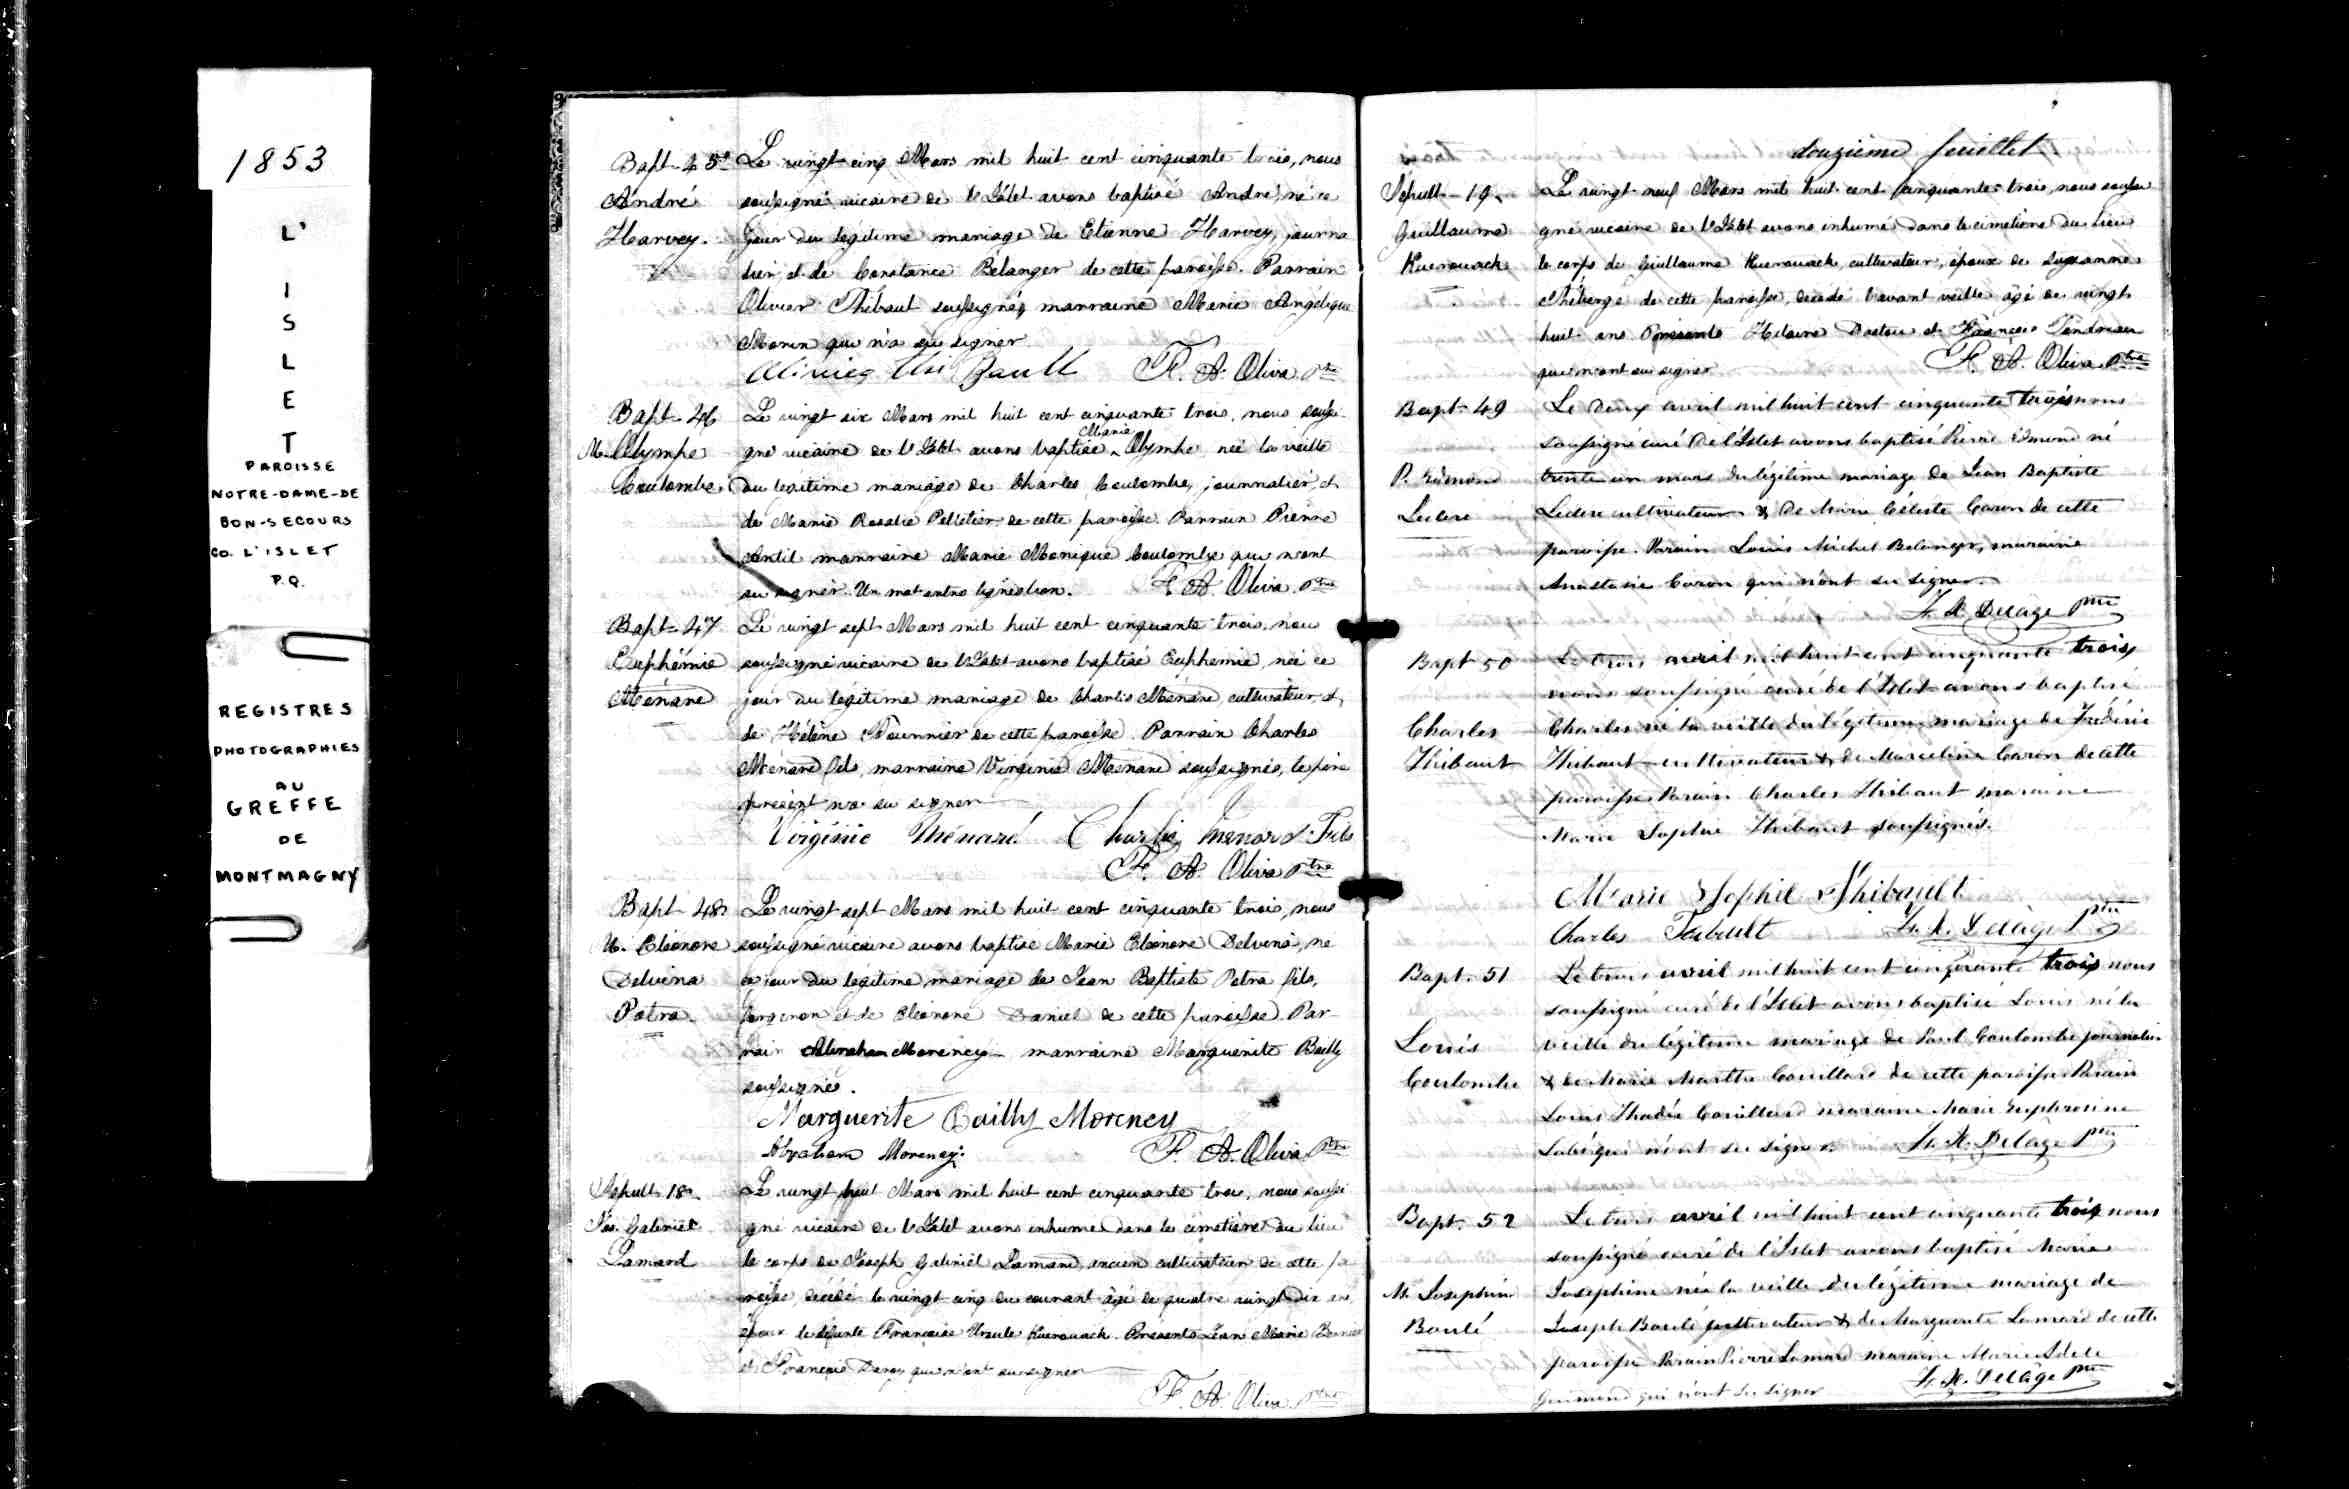 1853
L'
I
S
L
E
T
PAROISSE
NOTRE-DAME-DE
BON-SECOURS
CO. L'ISLET
P.Q.
REGISTRES
PHOTOGRAPHIES
AU
GREFFE
DE
MONTMAGNY
Bapt. 45
André
Harvey.
Le vingt-cinq Mars mil huit cent cinquante trois, nous
soussigné vicaire de l'Islet avons baptisé André, né ce
jour du légitime mariage de Etienne Harvey, journa
lier, et de Constance Bélanger de cette paroisse. Parrain
Olivier Thibault soussigné, marraine Marie Angélique
Morin qui n'a su signer
F. A. Oliva Ptre
Bapt. 46
M. Olympe
Coulombe
Le vingt six Mars mil huit cent cinquante trois, nous soussi
Marie
gné vicaire de l'Islet avons baptisé Olympe née la veille
du légitime mariage de Charles Coulombe, journalier, et
de Marie Rosalie Pelletier de cette paroisse. Parrain Pierre
marraine Marie Monique Coulombe qui n'ont
su signer. Un mot entre lignes bon. F. A. Oliva Ptre
Bapt. 47
Euphémie
Ménard
Le vingt sept Mars mil huit cent cinquante trois, nous
soussigné vicaire de l'Islet avons baptisé Euphémie, née ce
jour du légitime mariage de Charles Ménard, cultivateur, et
de Hélène Fournier de cette paroisse. Parrain Charles
Ménard fils, marraine Virginie Ménard soussignés, le père
présent n'a su signer
Virginie Ménard Charles Menard Fils
F. A. Oliva Ptre
Bapt. 48
M. Eléonore
Delvina
Patra
Le vingt sept Mars mil huit cent cinquante trois, nous
soussigné vicaire avons baptisé Marie Eléonore Delvina, né
ce jour du légitime mariage de Jean Baptiste Patra fils,
forgeron et de Eléonore Daniel de cette paroisse. Par-
rain Abraham Morency marraine Marguerite Bailly
soussignés.
Marguerite Bailly Morency
Abraham Morency
F. A. Oliva Ptre
Sépult. 18
Jos. Gabriel
Lamard
Le vingt huit Mars mil huit cent cinquante trois, nous soussi
gné vicaire de l'Islet avons inhumé dans le cimetière du lieu
le corps de Joseph Gabriel Lamard, ancien cultivateur de cette pa
roisse, décédé le vingt cinq du courant âgé de quatre vingt dix ans
époux de défunte Françoise Ursule Kuerouack. Présents Jean Marie
et François qui n'ont su signer
F. A. Oliva Ptre
douzième feuillet
Sépult. 19
Guillaume
Kuerouack
Le vingt-neuf Mars mil huit cent cinquante-trois, nous soussi
gné vicaire de l'Islet avons inhumé dans le cimetière du lieu
le corps de Guillaume Kuerouack, cultivateur, époux de Suzanne
Théberge de cette paroisse, décédé l'avant veille âgé de vingt
huit ans Présents Hilaire et François
qui n'ont su signer F. A. Oliva Ptre
Bapt. 49
P. Edmond
Leclerc
Le deux avril mil huit cent cinquante trois nous
soussigné curé de l'Islet avons baptisé Pierre Edmond né
trente un mars du légitime mariage de Jean Baptiste
Leclerc cultivateur & de Marie Céleste Caron de cette
paroisse. Parain Louis Michel Belanger, maraine
Anastasie Caron qui n'ont su signer
F. X. Delâge Ptre
Bapt. 50
Charles
Thibaut
Le trois avril mil huit cent cinquante trois
nous soussigné curé de l'Islet avons baptisé
Charles né la veille du légitime mariage de Frédéric
Thibaut cultivateur & de Marceline Caron de cette
paroisse. Parain Charles Thibaut maraine
Marie Sophie Thibaut soussignés.
Marie Sophie Thibault
Charles Tibault F. X. Delâge Ptre
Bapt. 51
Louis
Coulombe
Le trois avril mil huit cent cinquante trois nous
soussigné curé de l'Islet avons baptisé Louis né la
veille du légitime mariage de Paul Coulombe journalier
& de Marie Marthe Couillard de cette paroisse Parain
Louis Thadée Couillard maraine Marie Euphrosine
qui n'ont su signer. F. X. Delâge Ptre
Bapt. 52
M. Josephine
Boulé
Le trois avril mil huit cent cinquante trois nous
soussigné curé de l'Islet avons baptisé Marie
Josephine née la veille du légitime mariage de
Joseph Boulé cultivateur & de Marguerite Lamard de cette
paroisse Parain Pierre Lamard maraine Marie Adele
Guimond qui n'ont su signer F. X. Delâge Ptre